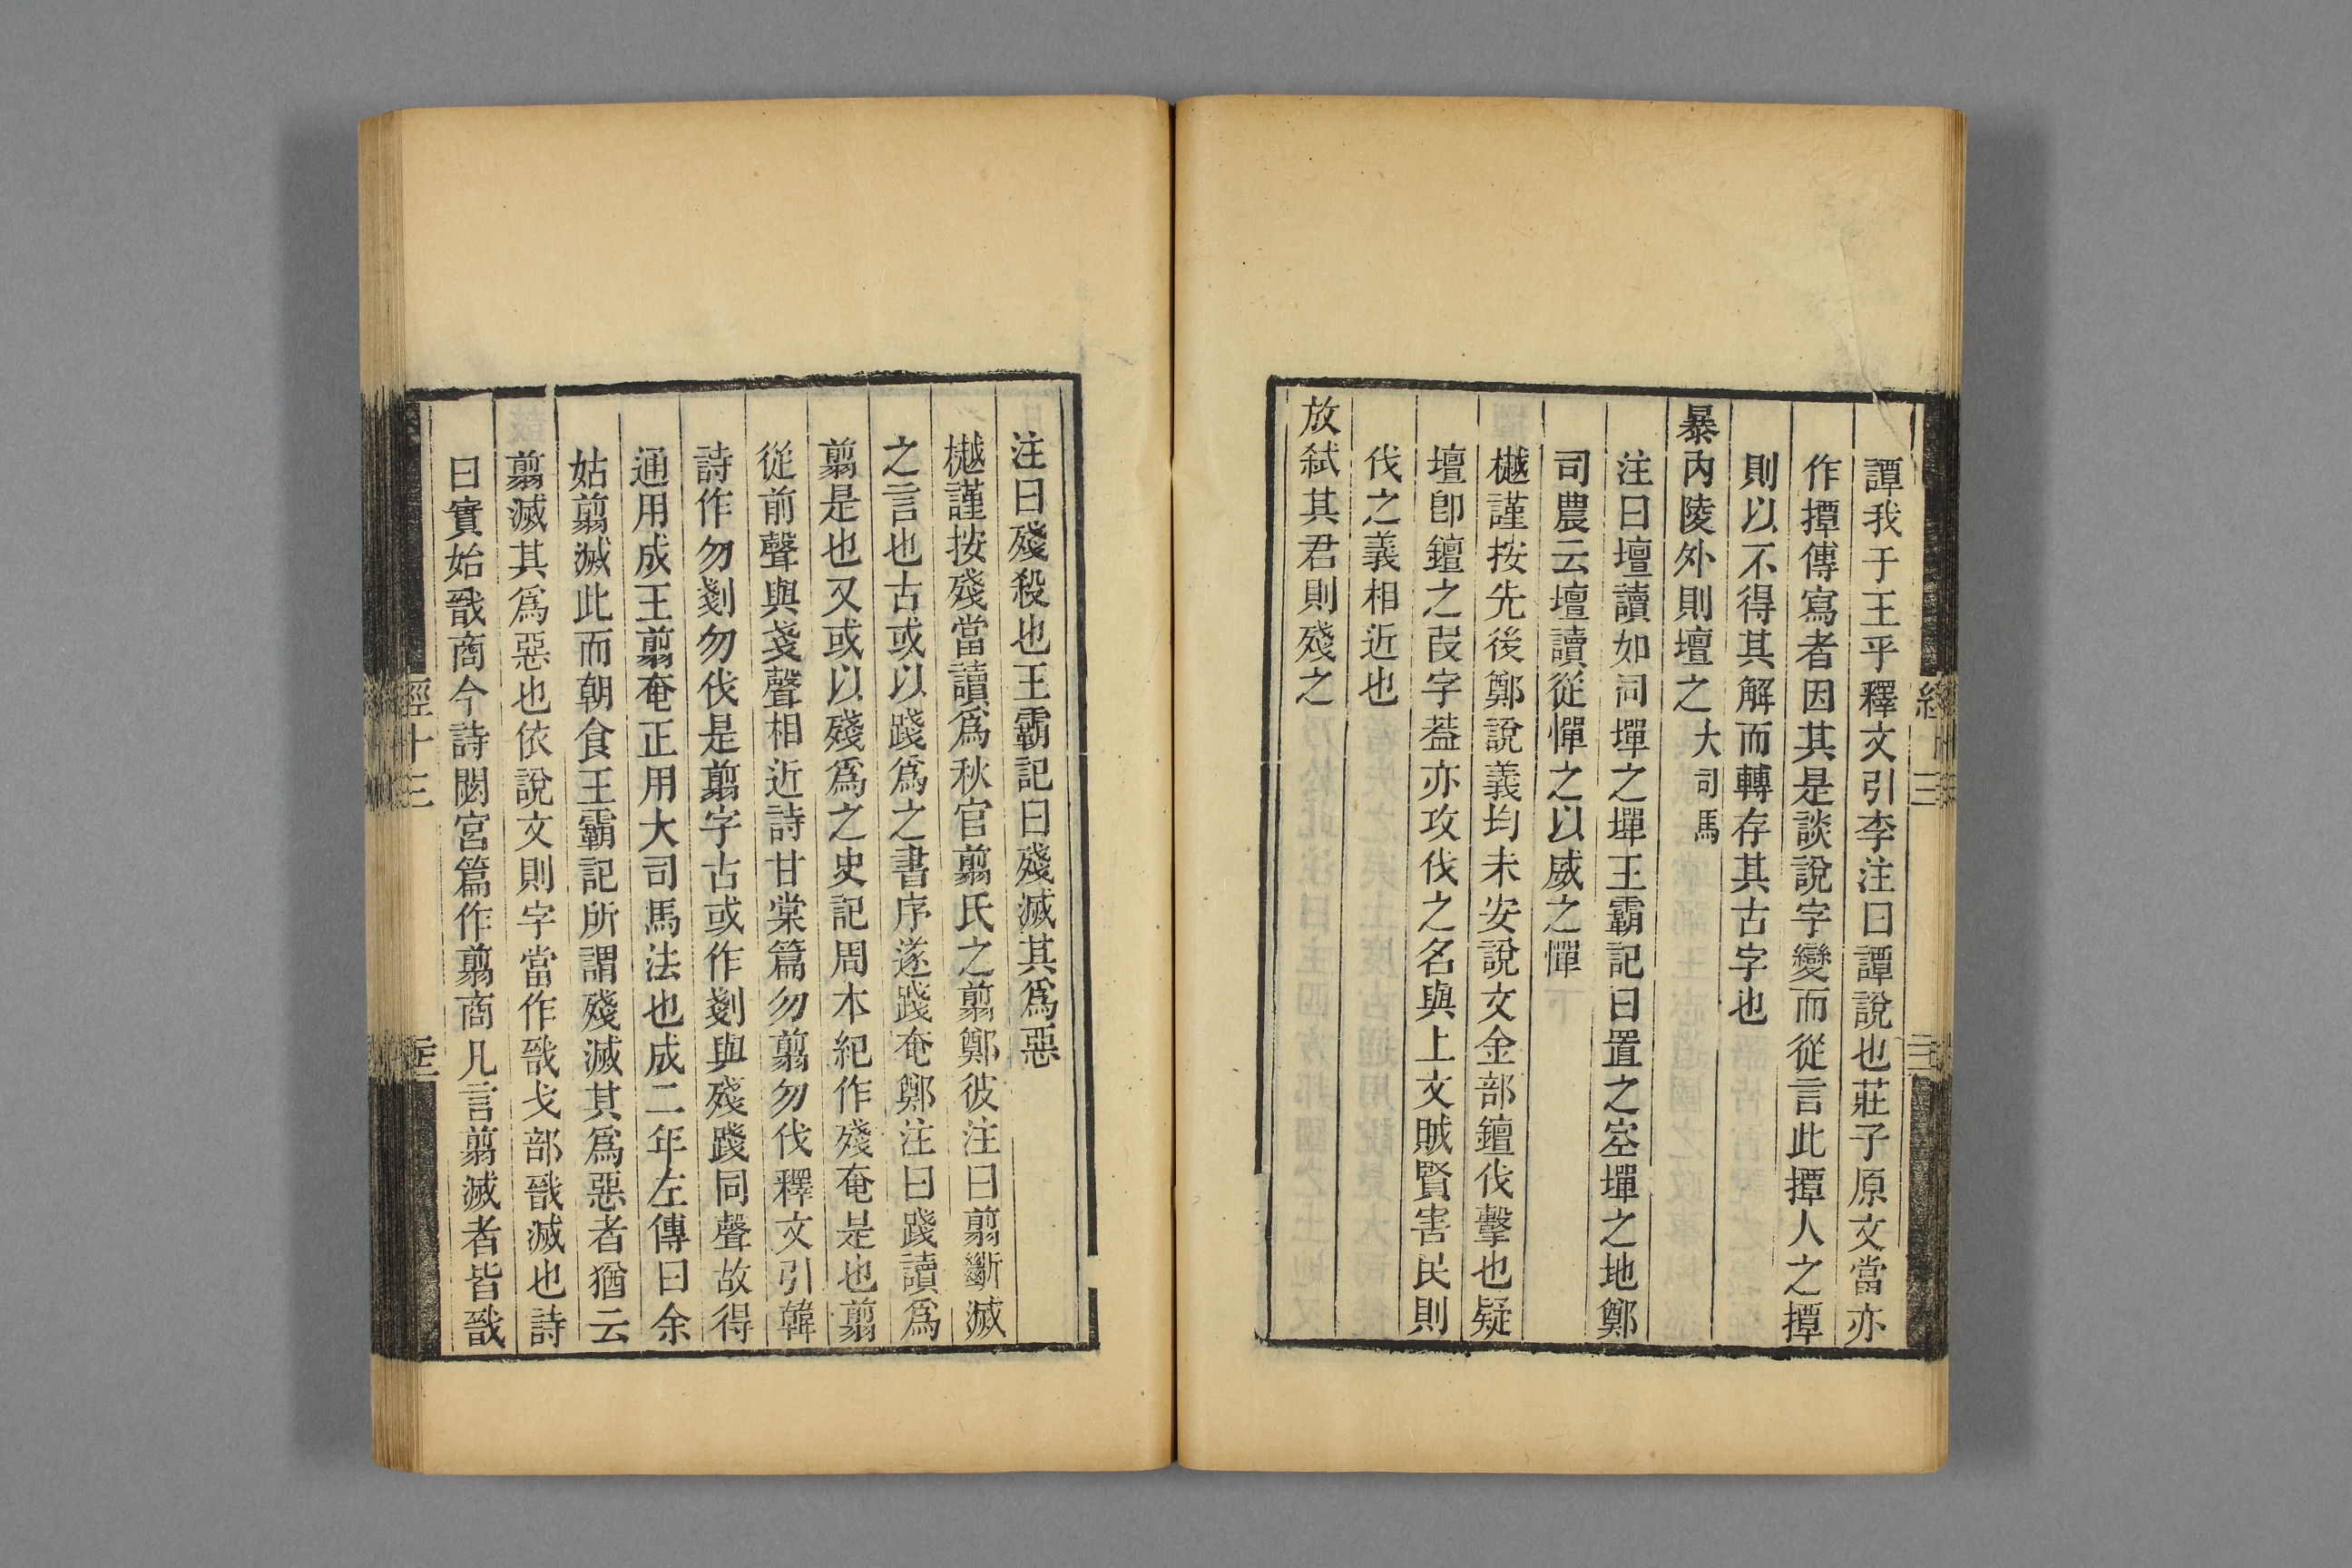 譚我于王乎釋文引李注曰譚說也莊子原文當亦
作撢傳寫者因其是談說字變而從言此撢人之撢
則以不得其解而轉存其古字也
暴內陵外則壇之大司馬
注曰壇讀如同墠之墠王霸記曰置之空墠之地鄭
司農云壇讀從憚之以威之憚
樾謹按先後鄭說義均未安說文金部鐔伐擊也疑
壇卽鐔之叚字蓋亦攻伐之名與上文賊賢害民則
伐之義相近也
放弑其君則殘之
注曰殘殺也王霸記曰殘滅其爲惡
樾謹按殘當讀爲秋官翦氏之翦鄭彼注曰翦斷滅
之言也古或以踐爲之書序遂踐奄鄭注曰踐讀爲
翦是也又或以殘爲之史記周本紀作殘奄是也翦
從前聲與戔聲相近詩甘棠篇勿翦勿伐釋文引韓
詩作勿剗勿伐是翦字古或作剗與殘踐同聲故得
通用成王翦奄正用大司馬法也成二年左傳曰余
姑翦滅此而朝食王霸記所謂殘滅其爲惡者猶云
翦滅其爲惡也依說文則字當作戩戈部戩滅也詩
曰實始戩商今詩閟宮篇作翦商凡言翦滅者皆戩
經十三